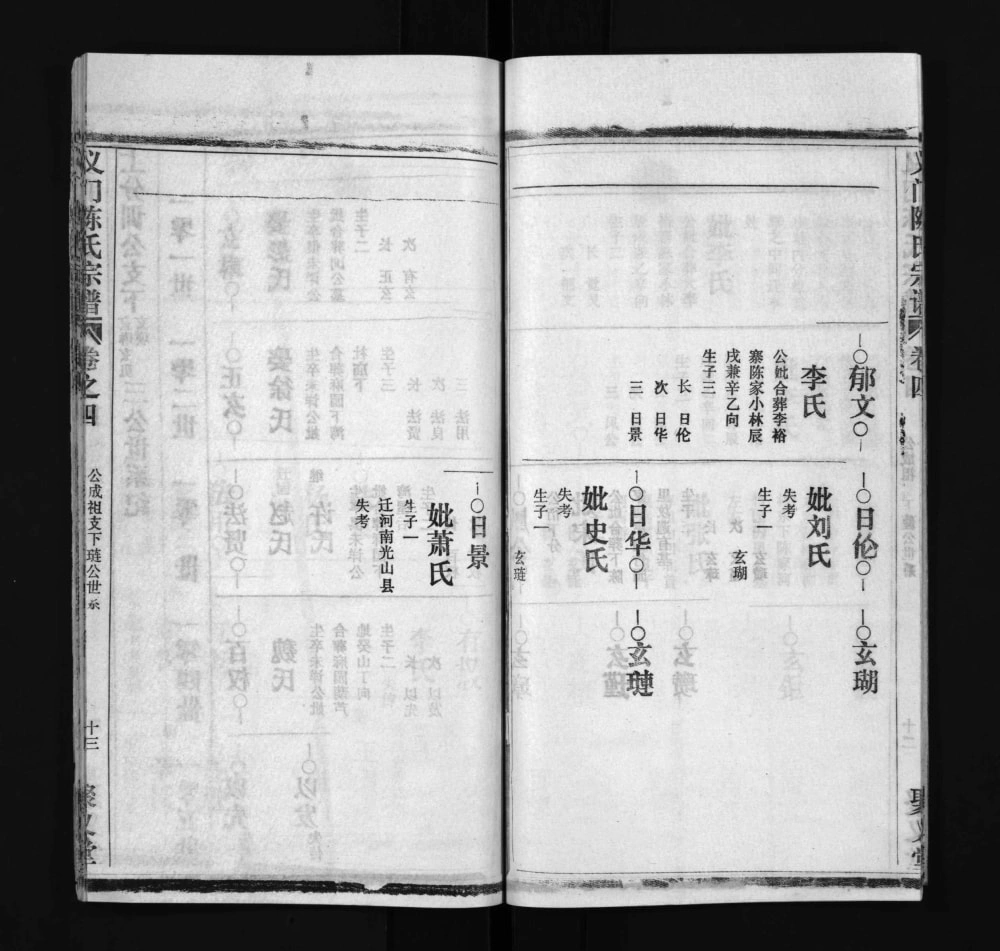 义门陈氏宗谱
卷四
聚义堂
郁文
李氏
公妣合葬李裕
寨陈家小林辰
戌兼辛乙向
生子三
长 日伦
次 日华
三 日景
日伦
妣刘氏
失考
生子一
玄瑚
玄瑚
日华
妣史氏
失考
生子一
玄琏
玄琏
日景
妣萧氏
生子一
迁河南光山县
失考
义门陈氏宗谱
卷之四
公成祖支下琏公世系
十三
聚义堂